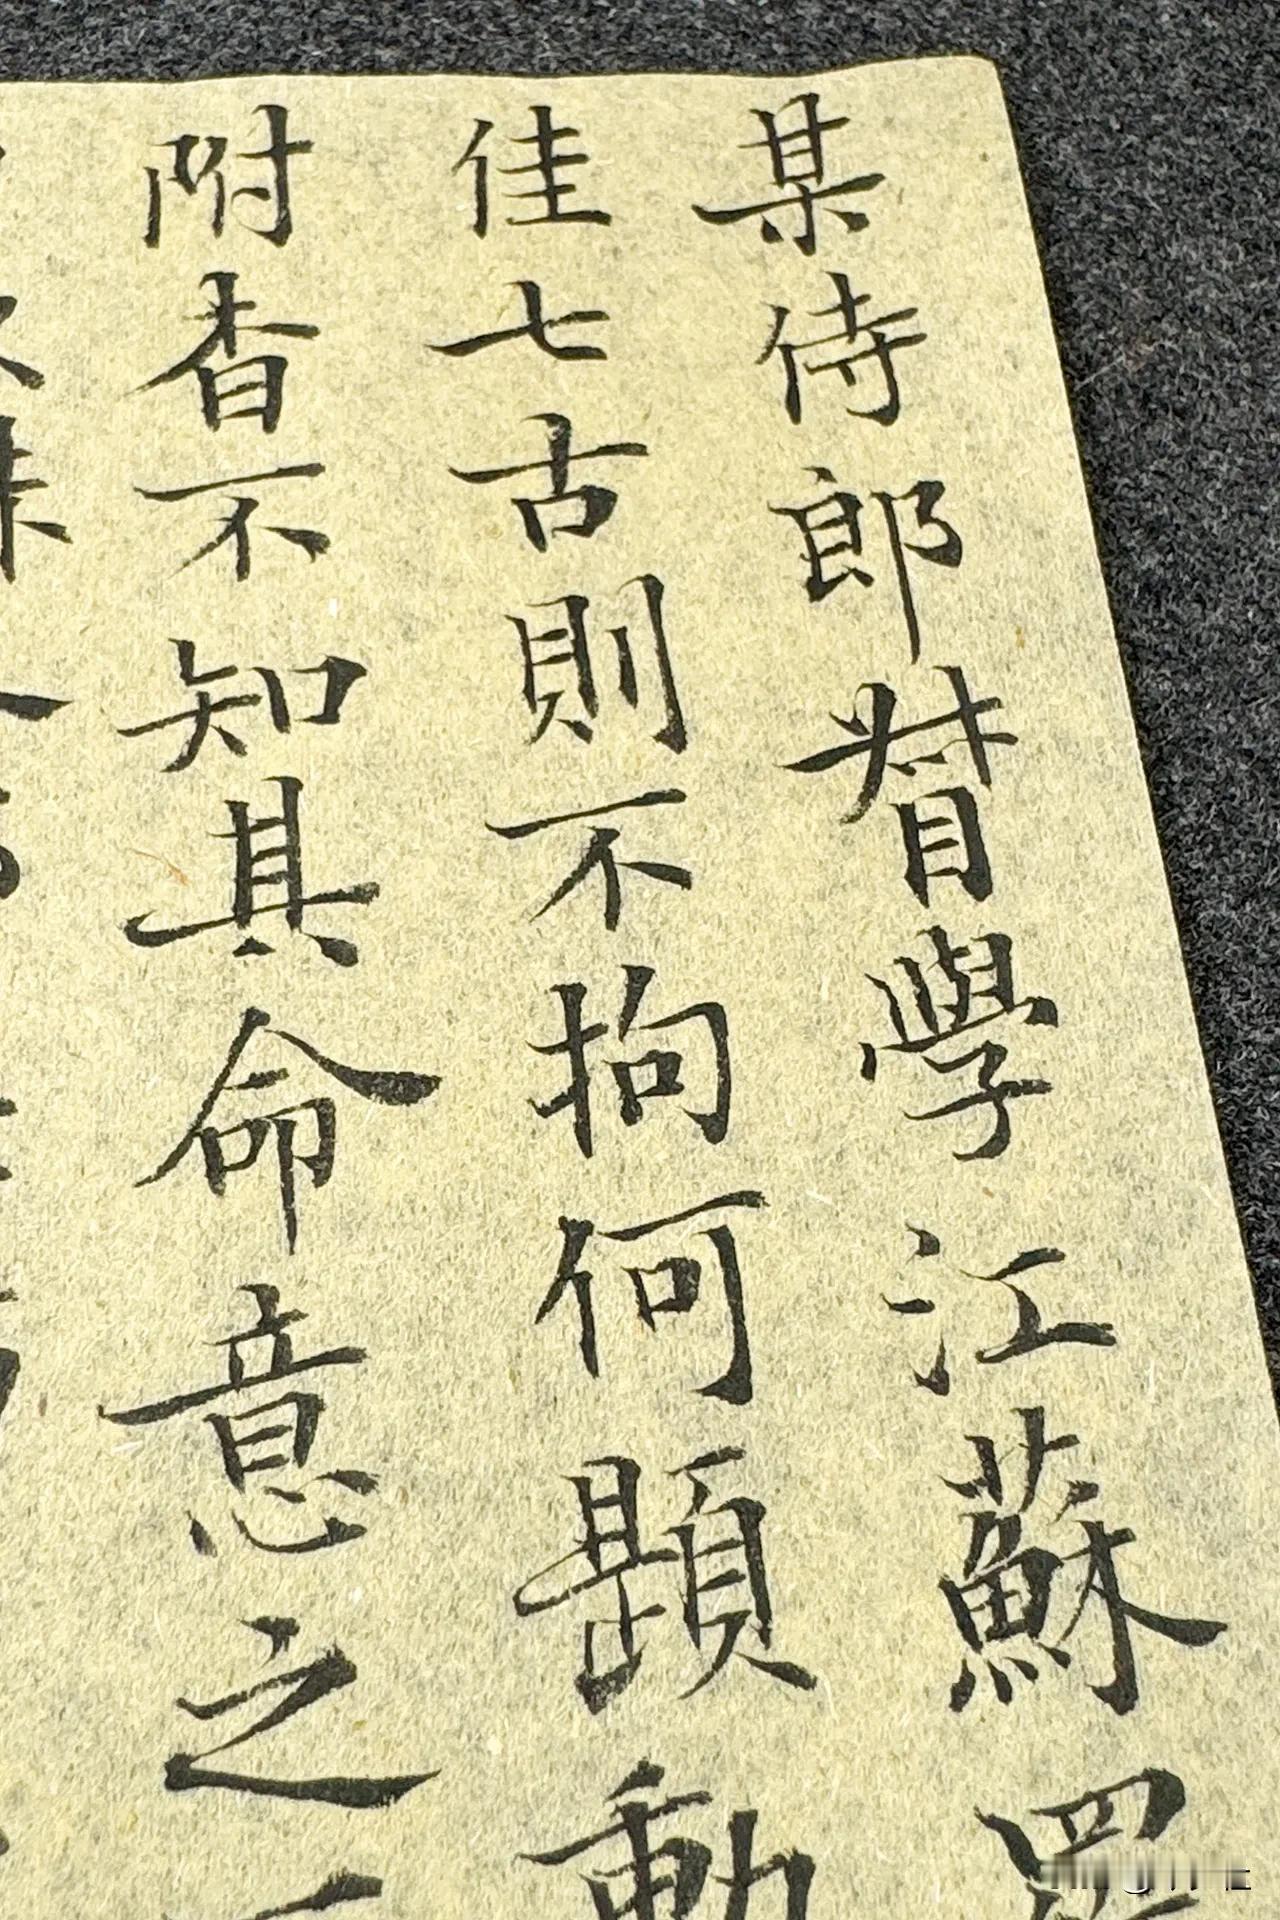 某侍郎督學江蘇罷
佳七古則不拘何題動
附香不知其命意之